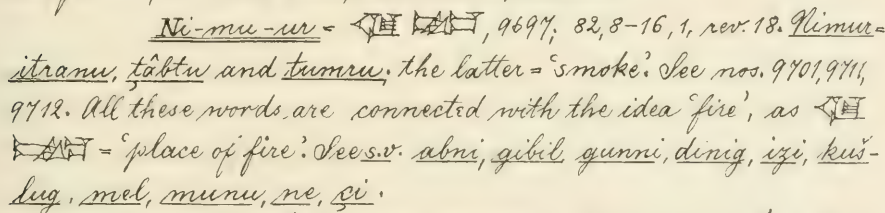 Ni-mu-ur = 𒆠𒉈, 9697; 82,8-16,1, rev. 18. Nimur=
itranu, ṭâbtu and tumru; the latter = 'smoke'. See nos. 9701, 9711,
9712. All these words are connected with the idea 'fire', as 𒆠
𒉈 = 'place of fire'. See s.v. abni, gibil, gunni, dinig, izi, kuš-
lug, mel, munu, ne, çi.